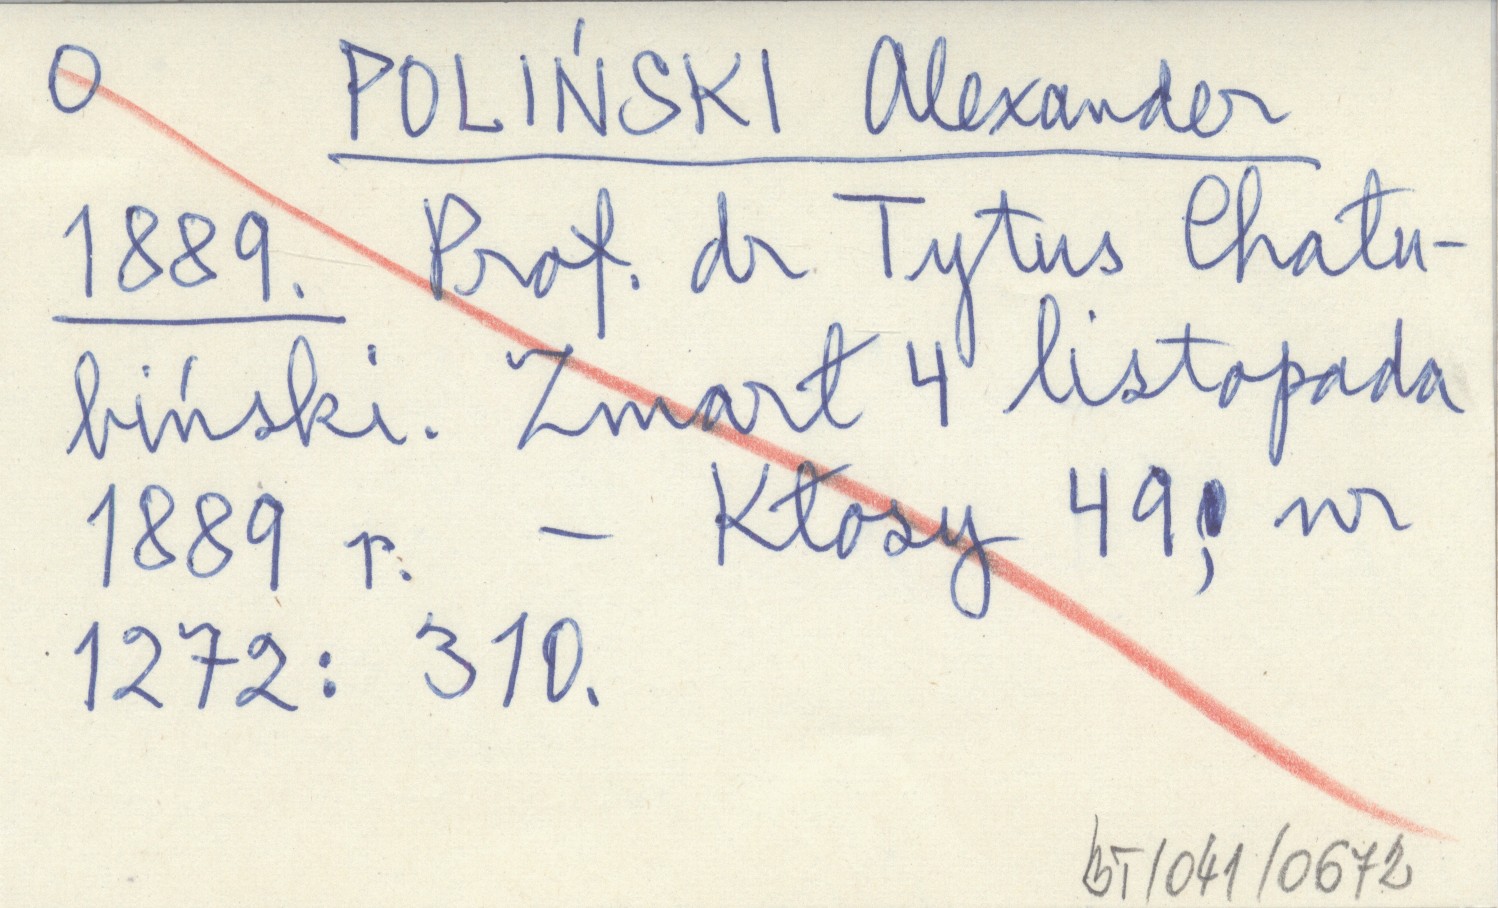 O POLIŃSKI Alexander
1889. Prof. dr Tytus Chału-
biński. Zmarł 4 listopada
1889 r. – Kłosy 49, nr
1272: 310.
BT/041/0672